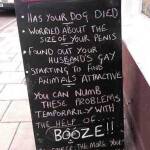 • HAS YOUR DOG DIED
• WORRIED ABOUT THE
SIZE OF YOUR PENIS
• FOUND OUT YOUR
HUSBAND'S GAY
• STARTING TO FIND
ANIMALS ATTRACTIVE
YOU CAN NUMB
THESE PROBLEMS
TEMPORARILY WITH
THE HELP OF...
BOOZE!!
THE MORE YOU